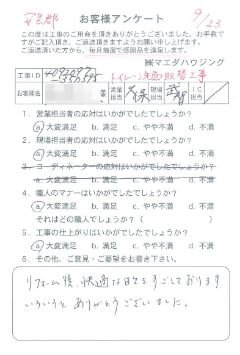 9/23
お客様アンケート
この度は工事のご用命を頂きありがとうございました。お手数で
すがご記入頂き、ご返送頂きますようお願い申し上げます。
ご返送頂いた方から、毎月抽選で感謝品を進呈します。
㈱マエダハウジング
工事ID トイレ・洗面取替工事
お客様名 営業担当 工事担当 IC担当
1. 営業担当者の応対はいかがでしたでしょうか?
ⓐ大変満足 b. 満足 c. やや不満 d. 不満
2. 現場担当者の応対はいかがでしたでしょうか?
ⓐ大変満足 b. 満足 c. やや不満 d. 不満
3. コーディネーターの応対はいかがでしたでしょうか?
a. 大変満足 b. 満足 c. やや不満 d. 不満
4. 職人のマナーはいかがでしたでしょうか?
ⓐ大変満足 b. 満足 c. やや不満 d. 不満
それはどの職人でしょうか?( )
5. 工事の仕上がりはいかがでしたでしょうか?
ⓐ大変満足 b. 満足 c. やや不満 d. 不満
6. その他、ご意見・ご要望をお書き下さい。
リフォーム後、快適な日々をすごしております
いろいろと ありがとうございました。